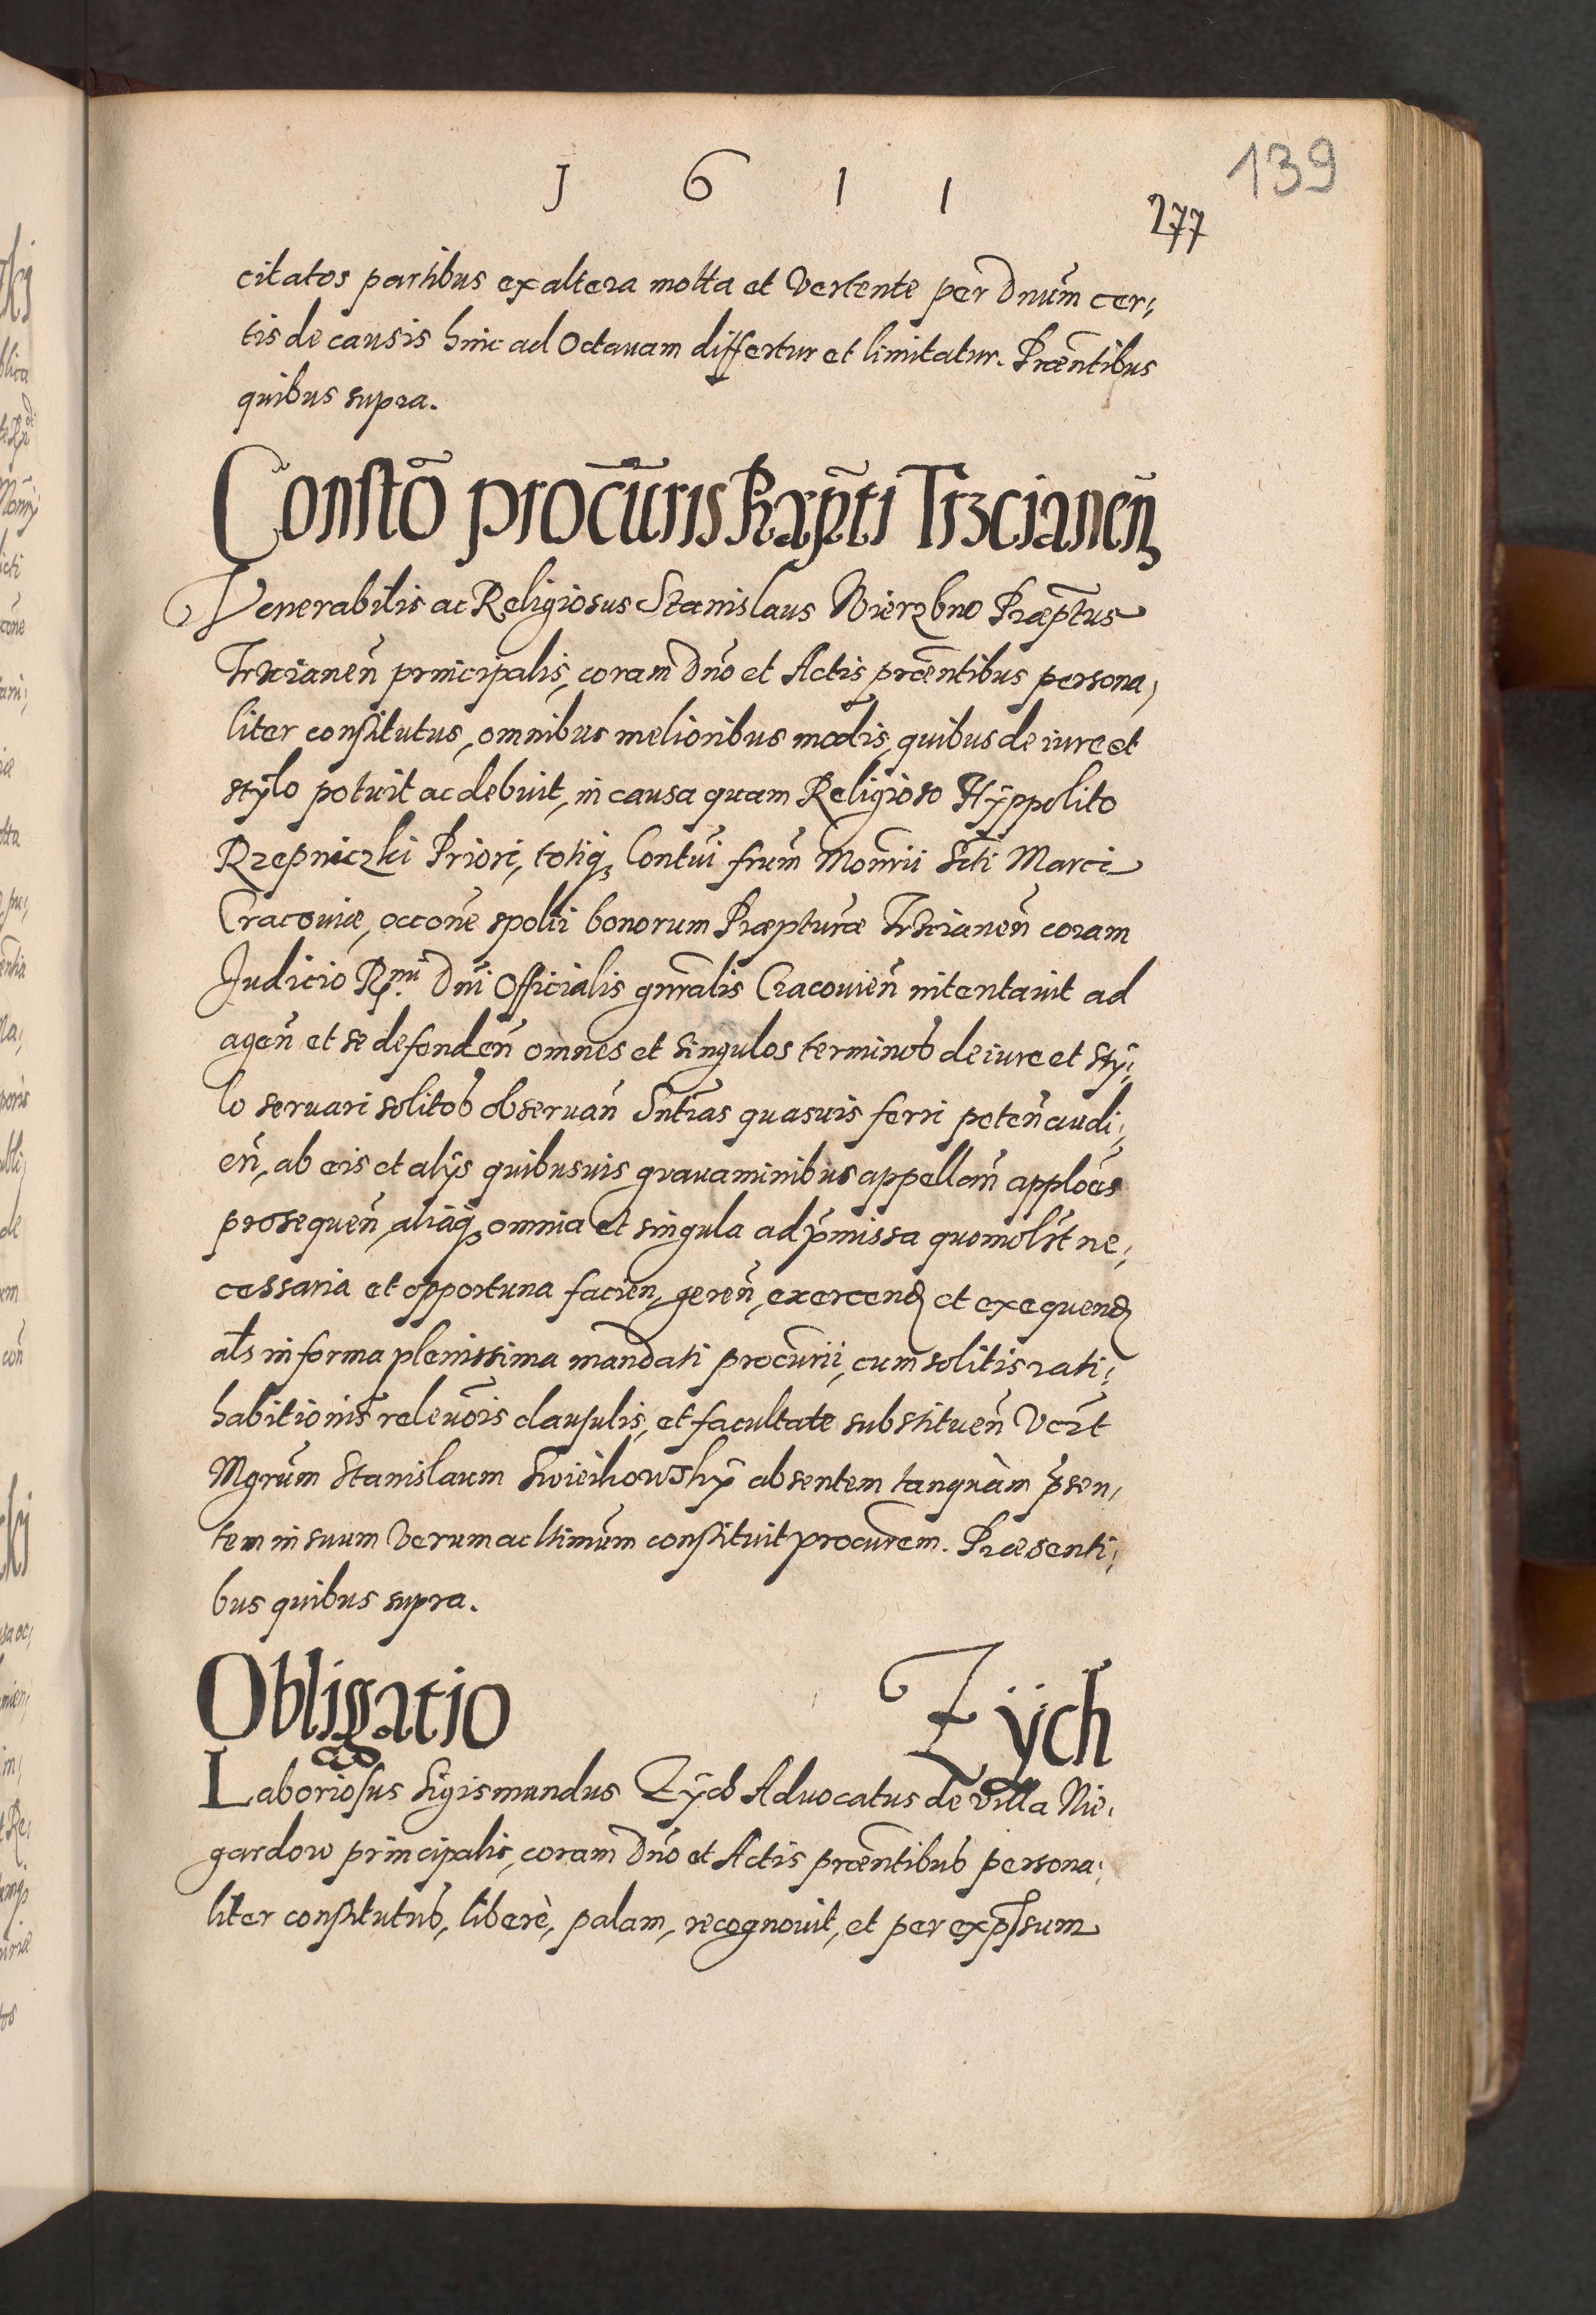 1 6 1 1
139
277
citatos partibus ex altera motta et vertente per Dnūm cer,
tis de causis hinc ad Octavam differtur et limitatur. Præntibus
quibus supra.
Constō procūris Præpti Trzcianeñ
Venerabilis ac Religiosus Stanislaus Wierzbno Præptus
Trzcianeñ principalis, coram Dnō et Actis præntibus persona,
liter constitutus, omnibus melioribus modis, quibus de iure et
stÿlo potuit ac debuit, in causa quam Religioso Hÿppolito
Rzepniczki Priori, totiq; Contūi frum Monrii Scti Marci
Cracoviæ, occone spolii bonorum Præpturæ Trzcianeñ coram
Judicio Rmi Dni Officialis gnralis Cracovieñ intentavit ad
ageñ et se defendeñ omnes et singulos terminos de iure et stÿ,
lo servari solitos observañ Sntias quasvis ferri peteñ audi,
eñ, ab eis et alÿs quibusvis gravaminibus appellañ applões
prosequeñ aliaq; omnia et singula ad pmissa quomolt ne,
cessaria et opportuna facieñ, gereñ, exercend et exequend
als in forma plenissima mandati procurii, cum solitis rati,
habitionis relevõis clausulis, et facultate substitueñ Vcrt
Mgrum Stanislaum SwieihowSkÿ absentem tanquàm psen,
tem in suum verum ac ltimum constituit procurem. Præsenti,
bus quibus supra.
Obligatio Zÿch
Laboriosus Sigismundus Zÿch Advocatus de villa Nie,
gardow principalis, coram Dnō et Actis præntibus persona,
liter constitutus, liberè, palam, recognovit, et per expssum